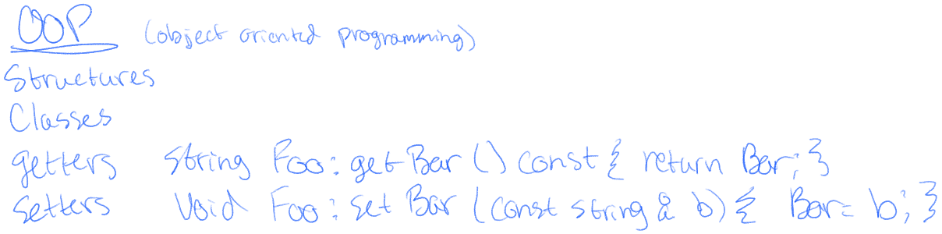 OOP (object oriented programming)
Structures
Classes
getters string Foo:getBar () const { return Bar; }
setters void Foo:set Bar (const string & b) { Bar= b; }